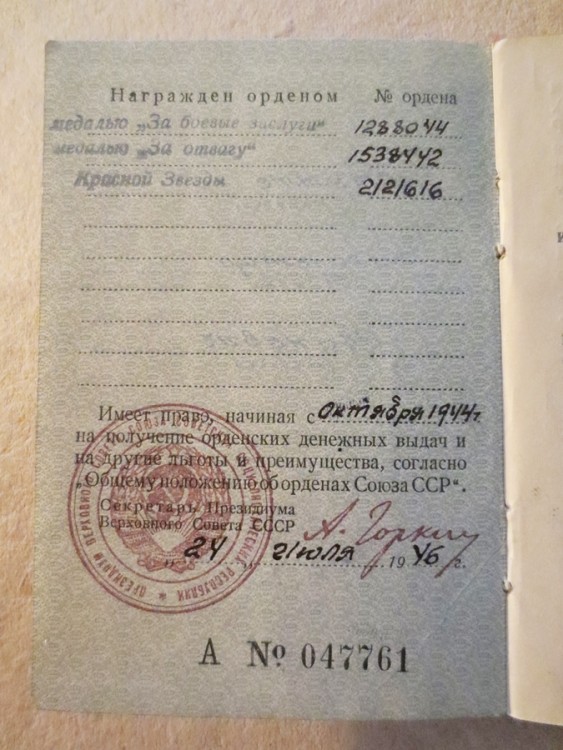 Награжден орденом № ордена
медалью „За боевые заслуги“ 1288044
медалью „За отвагу“ 1538442
Красной Звезды 2121616
Имеет право, начиная с октября 1944г
на получение орденских денежных выдач и
на другие льготы и преимущества, согласно
„Общему положению об орденах Союза ССР“.
Секретарь Президиума
Верховного Совета СССР А. Горкин
24 июля 1946 г.
А № 047761